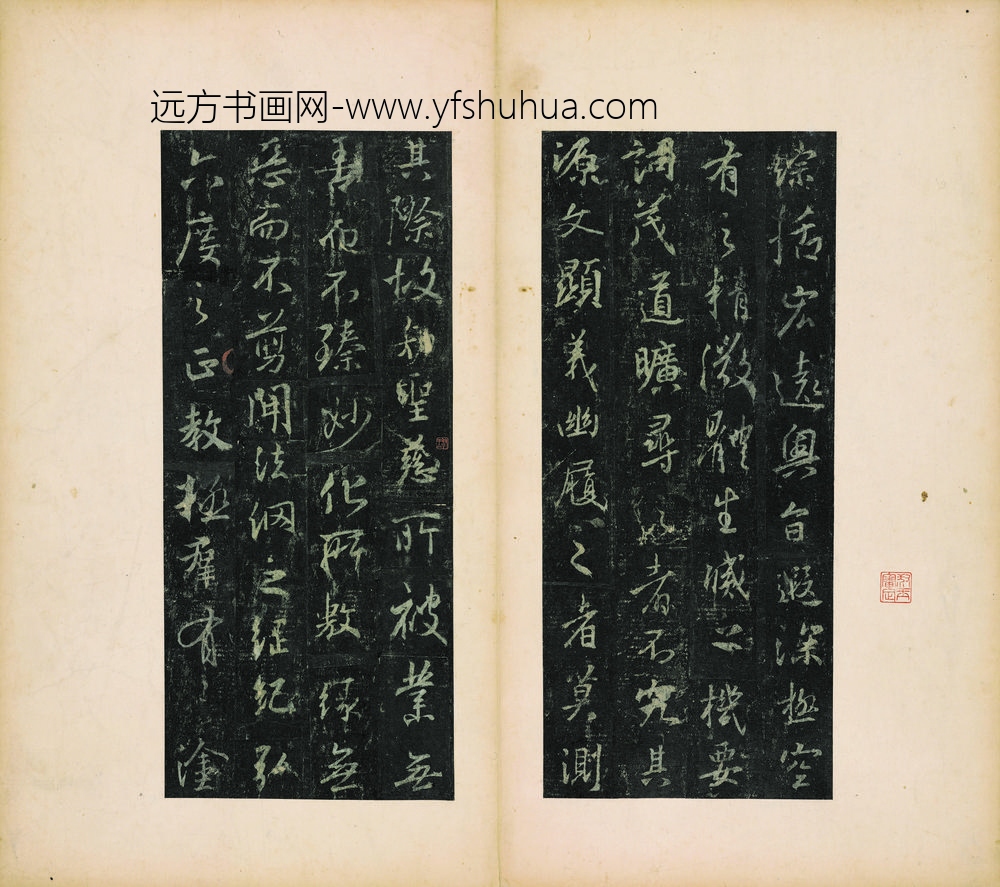 远方书画网-www.yfshuhua.com
综括宏遠奧旨遐深極空
有之精微體生滅之機要
詞茂道曠尋之者不究其
源文顯義幽履之者莫測
其際故知聖慈所被業無
善而不臻妙化所敷緣無
惡而不剪開法網之綱紀弘
六度之正教拯羣有之塗